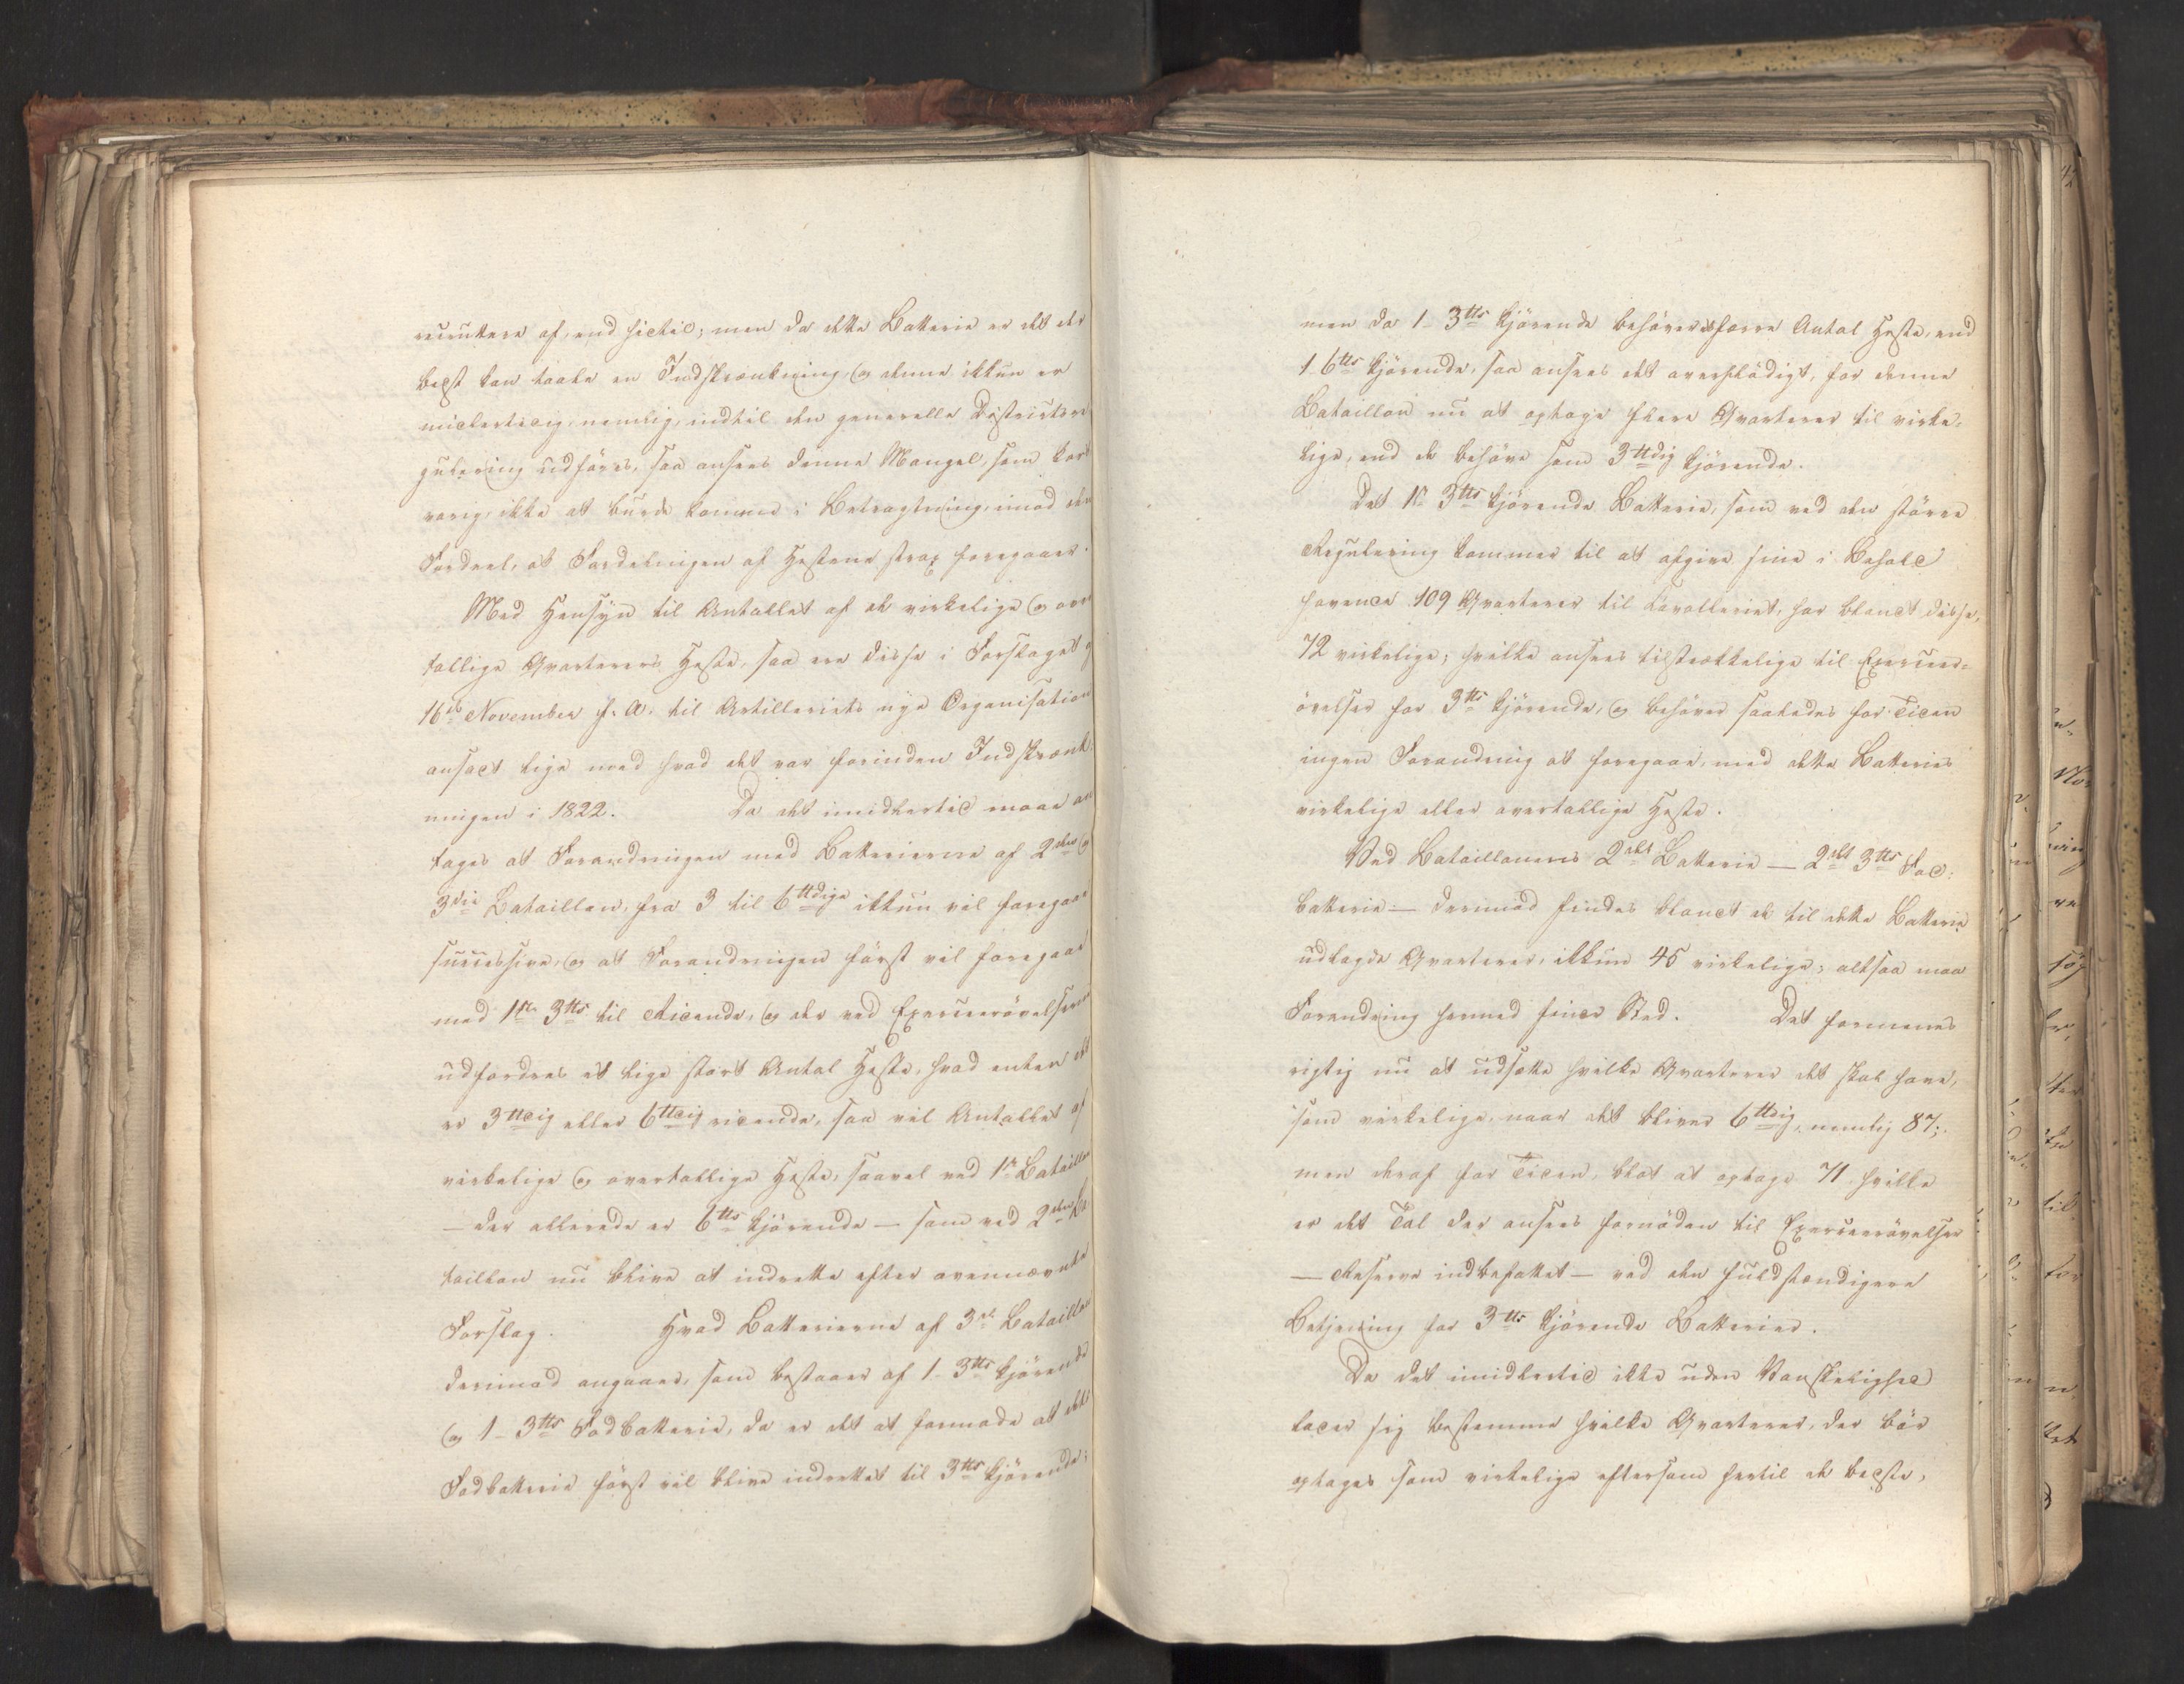 recruttere af, end hidtil; men da dette Batterie er det der
bedst kan taale en Indskrænkning, og denne ikkun er
midlertidig, nemlig, indtil den generelle Districtsre
gulering udføres, saa ansees denne Mangel, som kort
varig, ikke at burde komme i Betragtning, imod den
Fordeel, at Fordelingen af Hestene strax foregaaer.
Med Hensyn til Antallet af de virkelige og over
tallige Qvarterers Heste, saa ere disse i Forslaget af
16de November f. A. til Artilleriets nye Organisation
ansat lige med hvad det var forinden Indskrænk,
ningen i 1822. Da det imidlertid maae an
tages at Forandringen med Batterierne af 2den og
3die Bataillon, fra 3 til 6ttdige ikkun vil foregaae
successive, og at Forandringen først vil foregaae
med 1ste 3tts til Ridende, og der ved Exerceerövelserne
udfordres et lige stort Antal Heste, hvad enten det
er 3ttdig eller 6ttdig ridende, saa vil Antallet af
virkelige og overtallige Heste, saavel ved 1ste Bataillon
— der allerede er 6tts kjörende — som ved 2den Ba
taillon nu blive at indrette efter ovennævnte
Forslag. Hvad Batterierne af 3die Bataillon
derimod angaaer, som bestaaer af 1 - 3tts kjörende
og 1 - 3tts Fodbatterie, da er det at formode at det
Fodbatterie först vil blive indrettet til 3tts kjörende;
men da 1 - 3tts kjörende behöver et færre Antal Heste, end
1 6tts kjörende, saa ansees det overflödigt, for denne
Bataillon nu at optage flere Qvarterer til virke,
lige, end de behöve som 3ttdig kjörende.
Det 1ste 3tts kjörende Batterie, som ved den större
Regulering kommer til at afgive sine i Behold
havende 109 Qvarterer til Cavalleriet, har blandt disse,
72 virkelige; hvilke ansees tilstrækkelige til Exerceer=
övelser for 3tts kjörende, og behöver saaledes for Tiden
ingen Forandring at foregaae, med dette Batteries
virkelige eller overtallige Heste.
Ved Bataillonens 2det Batterie — 2det 3tts Fod:
batterie — derimod findes blandt de til dette Batterie
udlagde Qvarterer, ikkun 45 virkelige; altsaa maa
Forandring hermed finde Sted. Det formenes
rigtig nu at udsætte hvilke Qvarterer det skal have,
som virkelige, naar det bliver 6ttdig, nemlig 87;
men deraf for Tiden, blot at optage 71, hvilke
er det Tal der ansees fornöden til Exerceerövelser
— Reserve indbefattet — ved den fuldstændigere
Betjening for 3tts kjörende Batterier.
Da det imidlertid ikke uden Vanskelighed
lader sig bestemme hvilke Qvarterer, der bör
optages som virkelige eftersom hertil de bedste,